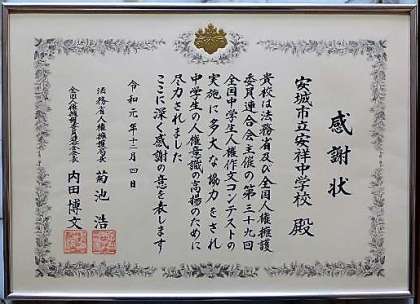 感謝状
安城市立安祥中学校 殿
貴校は法務省及び全国人権擁護
委員連合会主催の第三十九回
全国中学生人権作文コンテストの
実施に多大な協力をされ
中学生の人権意識の高揚のために
尽力されました
ここに深く感謝の意を表します
令和元年十二月四日
法務省人権擁護局長 菊池浩
全国人権擁護委員連合会長 内田博文